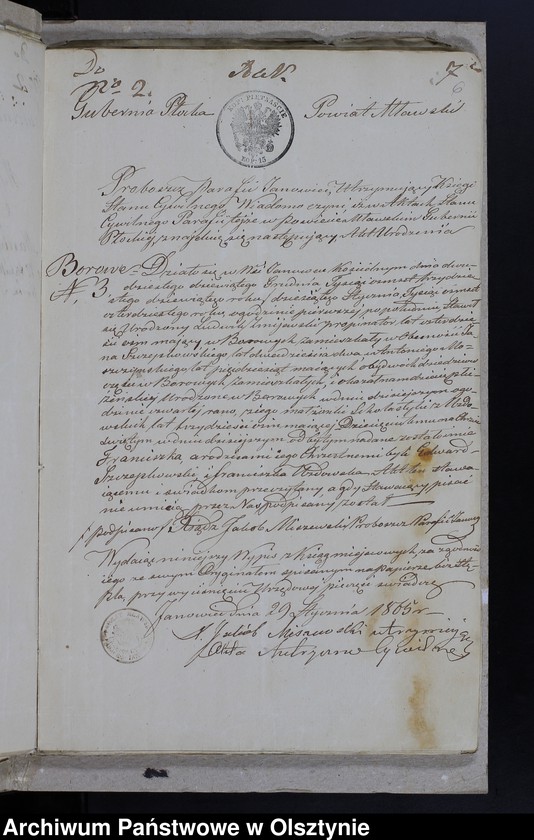 Do
No 2.
A.W.
7
6
Gubernia Płocka
Powiat Mławski
Proboszcz Parafii Janowiec, Utrzymujący Księgi
Stanu Cywilnego, Wiadomo czyni iż w Aktach Stanu
Cywilnego Parafii tejże w Powiecie Mławskim Gubernii
Płockiej znajduje się następujący Akt Urodzenia
Borowe = Działo się w Wsi Janowcu Kościelnym dnia dwu-
N. 3 dziestego dziewiątego Grudnia Tysiąc ośmset trzydzie-
stego dziewiątego roku, dziesiątego Stycznia Tysiąc ośmset
czterdziestego roku, o godzinie pierwszej po południu. Stawił
się Urodzony Ludwik propinator, lat czterdzie-
ści mający w Borowych zamieszkały w Obecności Ja-
na Szczepkowskiego lat dwadzieścia dwa, i Antoniego
lat pięćdziesiąt mających, obydwóch dziedziców
cząstkowych w Borowych zamieszkałych, i okazał nam dziecię płci
żeńskiej Urodzone w Borowych w dniu dzisiejszym o go-
dzinie czwartej rano, z jego małżonki Scholastyki z Uzdo-
wskich lat trzydzieści ośm mającej. Dziecięciu temu na Chrzcie
świętym w dniu dzisiejszym odbytym nadane zostało imie
Franciszka, a rodzicami jego Chrzestnemi byli Edward
Szczepkowski i Franciszka Uzdowska. Akt ten stawa-
jącemu i świadkom przeczytany, a gdy Stawający pisać
nie umieją przez Nas podpisany został
/podpisano/ Xiądz Jakób Miszewski Proboszcz Parafii Janowiec
Wydając niniejszy Wypis z Ksiąg miejscowych, za zgodność
jego ze swym Oryginałem spisanym na papierze bez stę-
pla, przy wyciśnieniu Urzędowej pieczęci świadczę
Janowiec dnia 29 Stycznia 1865 r.
X. Jakób Miszewski utrzymujący
Akta Stanu Cywilnego
Archiwum Państwowe w Olsztynie